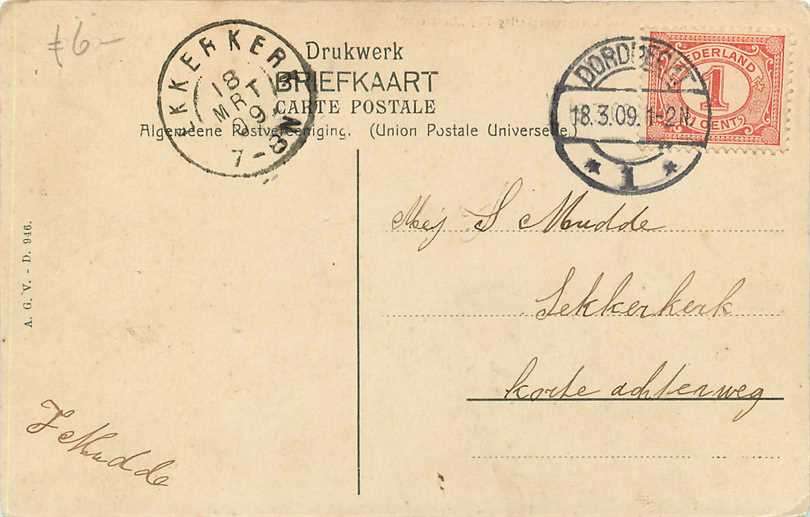 ƒ6-
Drukwerk
BRIEFKAART
CARTE POSTALE
Algemeene Postvereeniging. (Union Postale Universelle.)
KKERKERK
18
MRT
09
7-8N
DORDRECHT
18.3.09. 1-2N.
* 1 *
NEDERLAND
1
CENT
A. G. V. - D. 946.
Mej S Mudde
Lekkerkerk
korte achterweg
Mudde